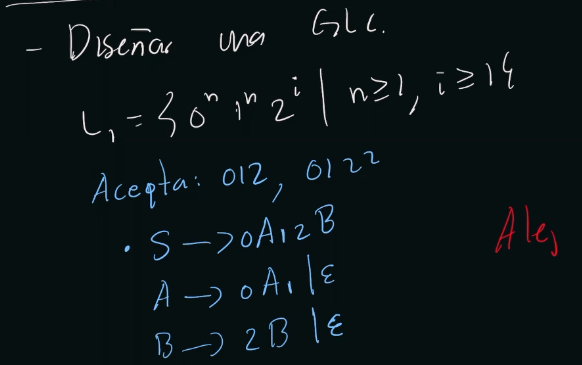 - Diseñar una GLC.
L₁ = { 0ⁿ 1ⁿ 2ⁱ | n ≥ 1, i ≥ 1 }
Acepta: 012, 0122
• S → 0A12B
Alej
A → 0A1 | ε
B → 2B | ε